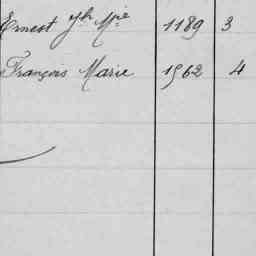 Ernest Jh Mie 1189 3
François Marie 1962 4